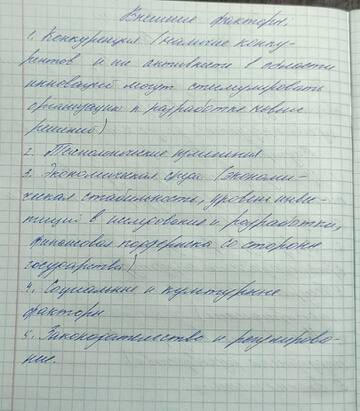 Внешние факторы.
1. Конкуренция (наличие конку-
рентов и их активности в области
инноваций могут стимулировать
организации к разработке новых
решений)
2. Технологические изменения
3. Экономическая среда (экономи-
ческая стабильность, уровень инвес-
тиций в исследования и разработки,
финансовая поддержка со стороны
государства)
4. Социальные и культурные
факторы
5. Законодательство и регулирова-
ние.